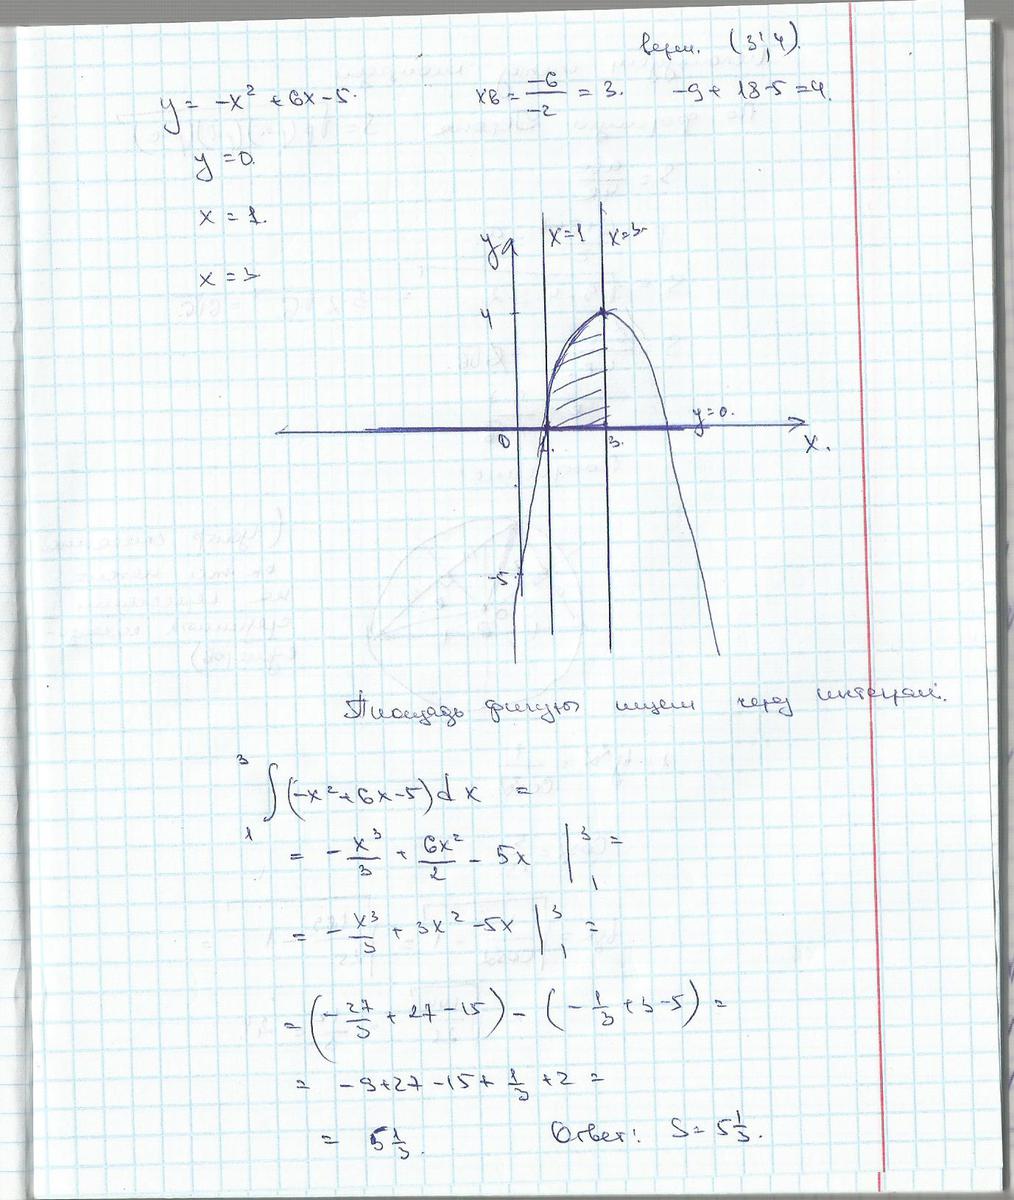 верш. (3; 4).
y = -x² + 6x - 5.
xв = -6/-2 = 3. -9 + 18 - 5 = 4.
y = 0.
x = 1.
x = 3
y
x = 1
x = 3
4
y = 0.
0
1.
3.
x.
-5
Площадь фигуры ищем через интеграл.
3
∫ (-x² + 6x - 5) dx =
1
= - x³/3 + 6x²/2 - 5x |₁³ =
= - x³/3 + 3x² - 5x |₁³ =
= (- 27/3 + 27 - 15) - (- 1/3 + 3 - 5) =
= -9 + 27 - 15 + 1/3 + 2 =
= 5 1/3. Ответ: S = 5 1/3.